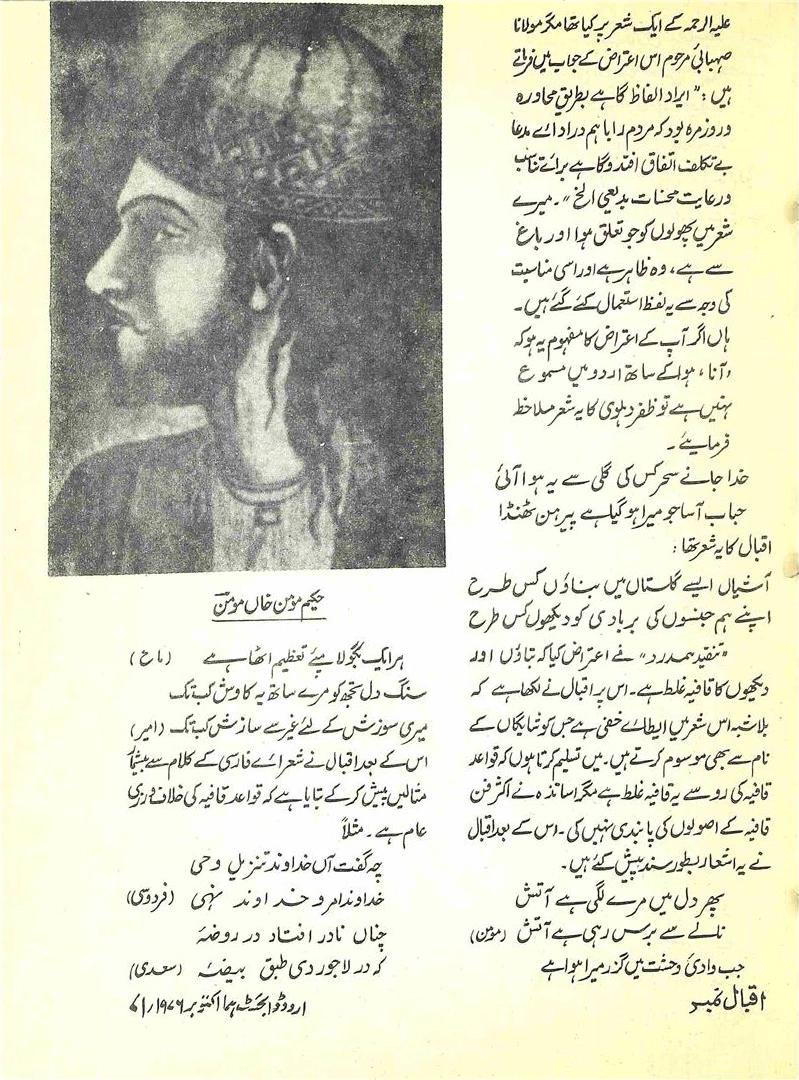 علیہ الرحمہ کے ایک شعر پر کیا تھا مگر مولانا
صہبائی مرحوم اس اعتراض کے جواب میں فرماتے
ہیں: "ایراد الفاظ گاہے بطریق محاورہ
و روزمرہ بود کہ مردم را باہم در ادائے مدعا
بے تکلف اتفاق افتد و گاہے برائے تناسب
و رعایت محسنات بدیعی الخ"۔ میرے
شعر میں پھولوں کو جو تعلق ہوا اور باغ
سے ہے، وہ ظاہر ہے اور اسی مناسبت
کی وجہ سے یہ لفظ استعمال کئے گئے ہیں۔
ہاں اگر آپ کے اعتراض کا مفہوم یہ ہو کہ
'آنا' ہوا کے ساتھ اردو میں مسموع
نہیں ہے تو ظفر دہلوی کا یہ شعر ملاحظہ
فرمایئے۔
خدا جانے سحر کس کی گلی سے یہ ہوا آئی
حباب آسا جو میرا ہو گیا ہے پیرہن ٹھنڈا
اقبال کا یہ شعر تھا:
آشیاں ایسے گلستاں میں بناؤں کس طرح
اپنے ہم جنسوں کی بربادی کو دیکھوں کس طرح
"تنقید ہمدرد" نے اعتراض کیا کہ بناؤں اور
دیکھوں کا قافیہ غلط ہے۔ اس پر اقبال نے لکھا ہے کہ
بلاشبہ اس شعر میں ایطائے خفی ہے جس کو شایگاں کے
نام سے بھی موسوم کرتے ہیں۔ میں تسلیم کرتا ہوں کہ قواعد
قافیہ کی رو سے یہ قافیہ غلط ہے مگر اساتذہ نے اکثر فن
قافیہ کے اصولوں کی پابندی نہیں کی۔ اس کے بعد اقبال
نے یہ اشعار بطور سند پیش کئے ہیں۔
پھر دل میں مرے لگی ہے آتش
نالے سے برس رہی ہے آتش (مومن)
جب وادیٔ وحشت میں گزر میرا ہوا ہے
اقبال نمبر
حکیم مومن خاں مومن
ہر ایک بگولا پئے تعظیم اٹھا ہے
سنگ دل تجھ کو مرے ساتھ یہ کاوش کب تک
میری سوزش کے لئے غیر سے سازش کب تک (امیر)
اس کے بعد اقبال نے شعرائے فارسی کے کلام سے بیشمار
مثالیں پیش کر کے بتایا ہے کہ قواعد قافیہ کی خلاف ورزی
عام ہے۔ مثلاً
چہ گفت آں خداوند تنزیل وحی
خداوند امر و خداوند نہی (فردوسی)
چناں نادر افتاد در روضۂ
کہ در لاجوردی طبق بیضۂ (سعدی)
اردو ڈائجسٹ ہما اکتوبر ۱۹۷۶ء/۷۱